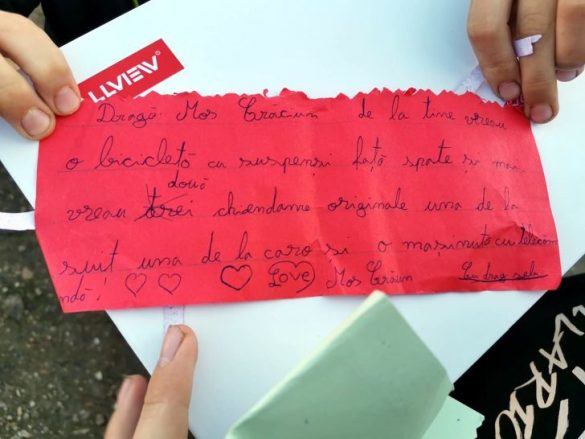 LLVIEW®
Dragă Mos Cracium de la tine vreau
o bicicletă cu suspensi față spate și mai
două
vreau trei chiendame originale una de la
suit una de la caro si o mașinuta cu telecom
ndă!
Love Mos Craium Cu drag